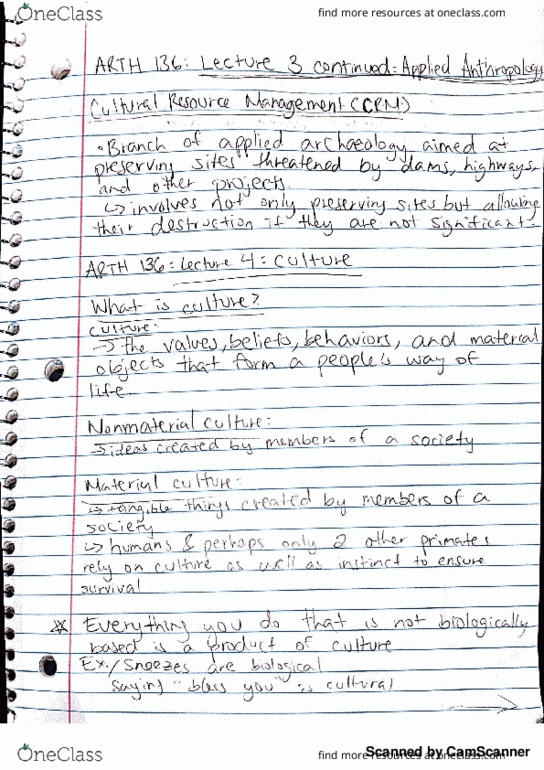 OneClass
find more resources at oneclass.com
ARTH 136: Lecture 3 continued: Applied Anthropology
Cultural Resource Management (CRM)
• Branch of applied archaeology aimed at
preserving sites threatened by dams, highways,
and other projects
↳ involves not only preserving sites but allowing
their destruction if they are not significant
ARTH 136: Lecture 4: Culture
What is culture?
Culture:
→ The values, beliefs, behaviors, and material
objects that form a people's way of
life
Nonmaterial culture:
→ ideas created by members of a society
Material culture:
↳ tangible things created by members of a
society
↳ humans & perhaps only 2 other primates
rely on culture as well as instinct to ensure
survival
* Everything you do that is not biologically
based is a product of culture
Ex./ Sneezes are biological
Saying "bless you" is cultural
OneClass
find more resources at oneclass.com
Scanned by CamScanner